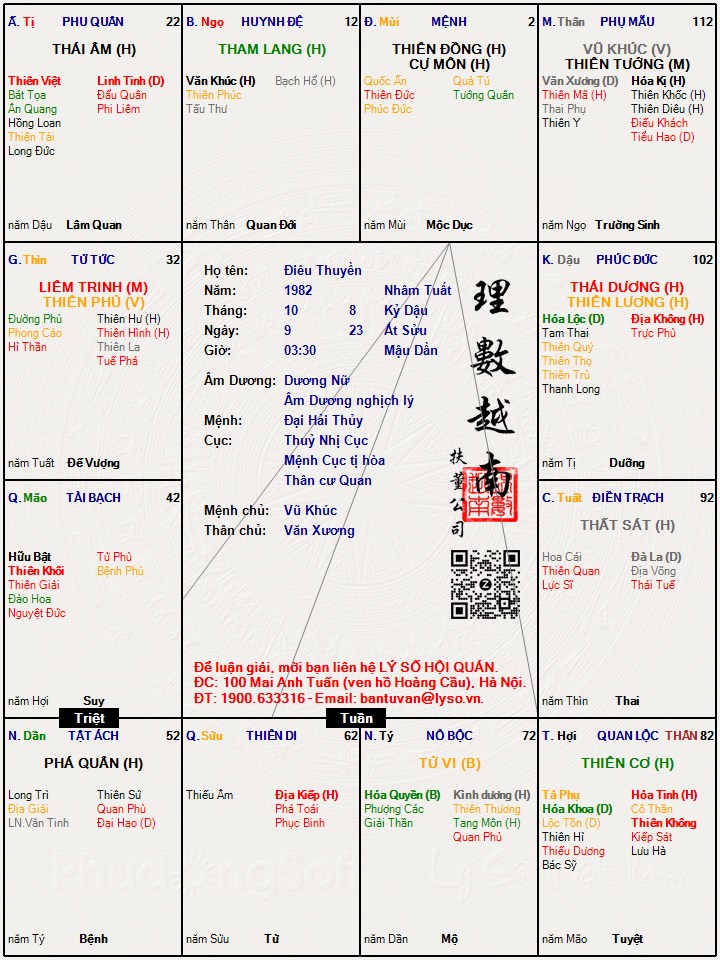 Ấ. Tị PHU QUÂN 22
THÁI ÂM (H)
Thiên Việt Linh Tinh (D)
Bát Tọa Đẩu Quân
Ân Quang Phi Liêm
Hồng Loan
Thiên Tài
Long Đức
năm Dậu Lâm Quan
B. Ngọ HUYNH ĐỆ 12
THAM LANG (H)
Văn Khúc (H) Bạch Hổ (H)
Thiên Phúc
Tấu Thư
năm Thân Quan Đới
Đ. Mùi MỆNH 2
THIÊN ĐỒNG (H)
CỰ MÔN (H)
Quốc Ấn Quả Tú
Thiên Đức Tướng Quân
Phúc Đức
năm Mùi Mộc Dục
M. Thân PHỤ MẪU 112
VŨ KHÚC (V)
THIÊN TƯỚNG (M)
Văn Xương (D) Hóa Kị (H)
Thiên Mã (H) Thiên Khốc (H)
Thai Phụ Thiên Diêu (H)
Thiên Y Điếu Khách
Tiểu Hao (D)
năm Ngọ Trường Sinh
G. Thìn TỬ TỨC 32
LIÊM TRINH (M)
THIÊN PHỦ (V)
Đường Phù Thiên Hư (H)
Phong Cáo Thiên Hình (H)
Hỉ Thần Thiên La
Tuế Phá
năm Tuất Đế Vượng
Họ tên: Điêu Thuyền
Năm: 1982 Nhâm Tuất
Tháng: 10 8 Kỷ Dậu
Ngày: 9 23 Ất Sửu
Giờ: 03:30 Mậu Dần
Âm Dương: Dương Nữ
Âm Dương nghịch lý
Mệnh: Đại Hải Thủy
Cục: Thuỷ Nhị Cục
Mệnh Cục tị hòa
Thân cư Quan
Mệnh chủ: Vũ Khúc
Thân chủ: Văn Xương
理數越南
扶董公司
Để luận giải, mời bạn liên hệ LÝ SỐ HỘI QUÁN.
ĐC: 100 Mai Anh Tuấn (ven hồ Hoàng Cầu), Hà Nội.
ĐT: 1900.633316 - Email: bantuvan@lyso.vn.
K. Dậu PHÚC ĐỨC 102
THÁI DƯƠNG (H)
THIÊN LƯƠNG (H)
Hóa Lộc (D) Địa Không (H)
Tam Thai Trực Phù
Thiên Quý
Thiên Thọ
Thiên Trù
Thanh Long
năm Tị Dưỡng
Q. Mão TÀI BẠCH 42
Hữu Bật Tử Phù
Thiên Khôi Bệnh Phù
Thiên Giải
Đào Hoa
Nguyệt Đức
năm Hợi Suy
C. Tuất ĐIỀN TRẠCH 92
THẤT SÁT (H)
Hoa Cái Đà La (D)
Thiên Quan Địa Võng
Lực Sĩ Thái Tuế
năm Thìn Thai
Triệt
Tuần
N. Dần TẬT ÁCH 52
PHÁ QUÂN (H)
Long Trì Thiên Sứ
Địa Giải Quan Phù
LN.Văn Tinh Đại Hao (D)
năm Tý Bệnh
Q. Sửu THIÊN DI 62
Thiếu Âm Địa Kiếp (H)
Phá Toái
Phục Binh
năm Sửu Tử
N. Tý NÔ BỘC 72
TỬ VI (B)
Hóa Quyền (B) Kình dương (H)
Phượng Các Thiên Thương
Giải Thần Tang Môn (H)
Quan Phủ
năm Dần Mộ
T. Hợi QUAN LỘC THÂN 82
THIÊN CƠ (H)
Tả Phụ Hỏa Tinh (H)
Hóa Khoa (D) Cô Thần
Lộc Tồn (D) Thiên Không
Thiên Hỉ Kiếp Sát
Thiếu Dương Lưu Hà
Bác Sỹ
năm Mão Tuyệt